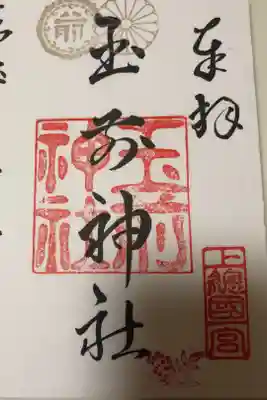 奉拝
上總國一宮
玉前神社
玉前神社